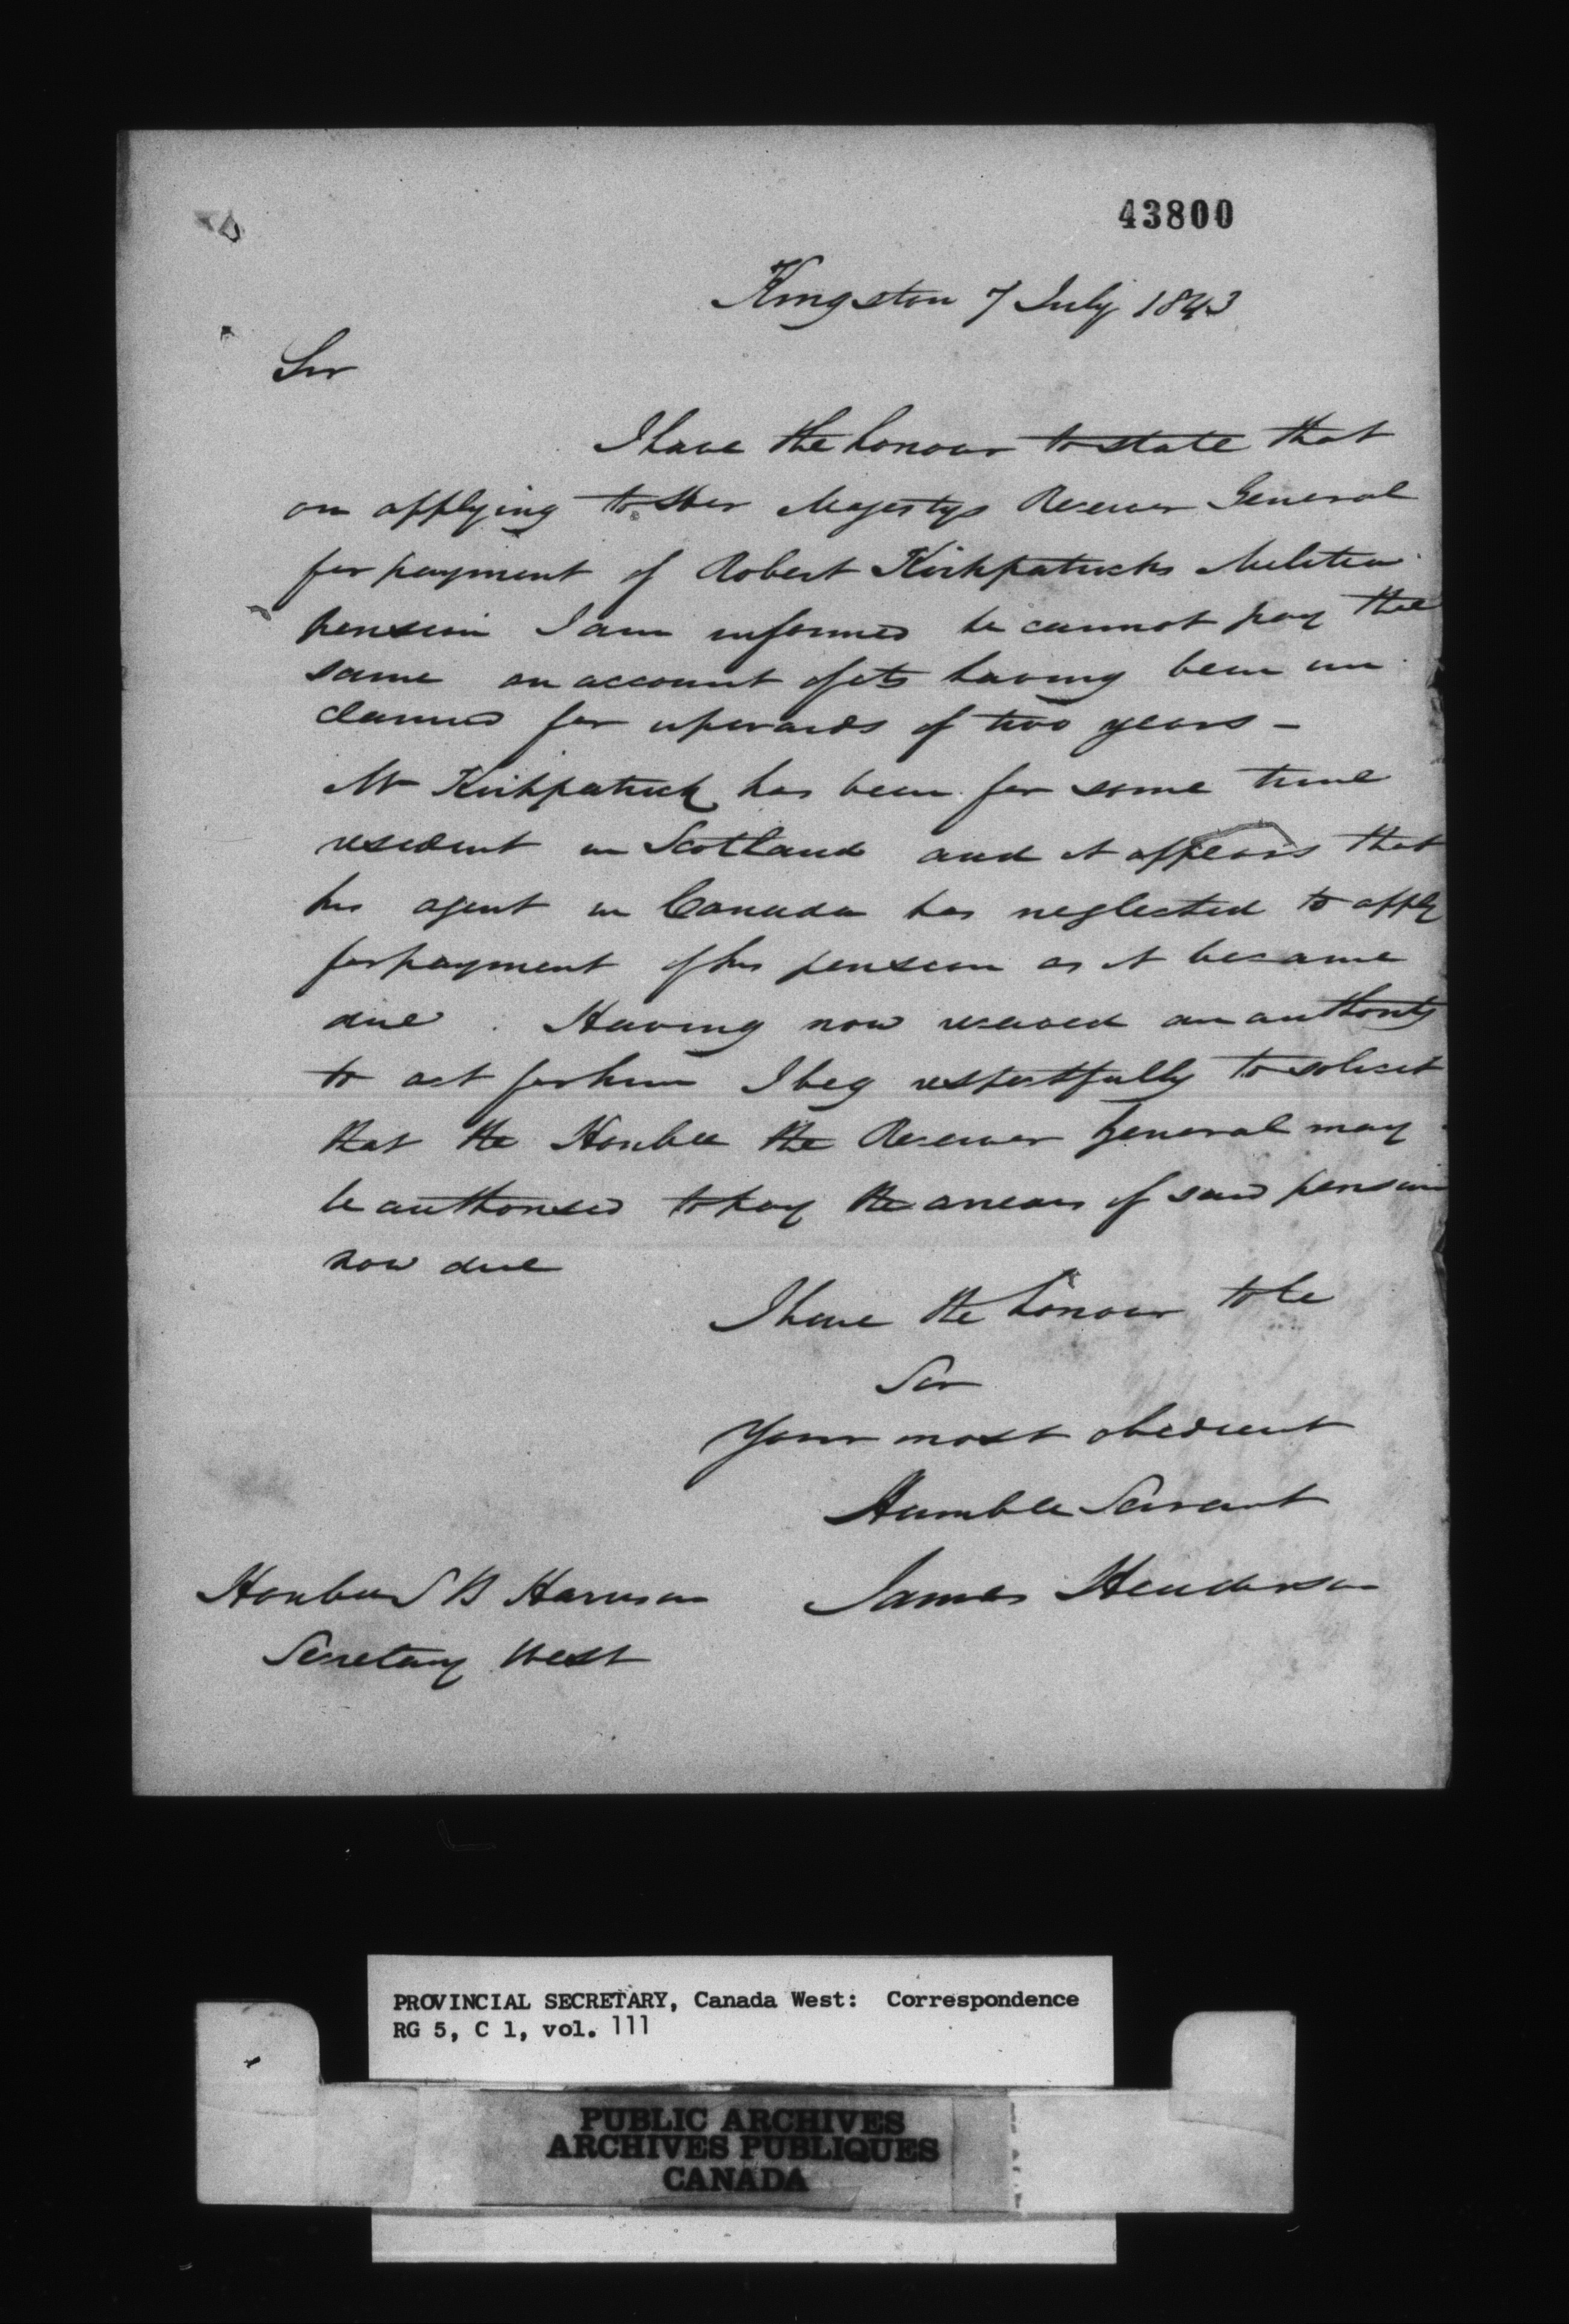 43800
Kingston 7 July 1843
Sir
I have the honour to state that
on applying to Her Majestys Receiver General
for payment of Robert Kirkpatricks Militia
pension I am informed he cannot pay the
same on account of its having been un
claimed for upwards of two years -
Mr Kirkpatrick has been for some time
resident in Scotland and it appears that
his agent in Canada has neglected to apply
for payment of his pension as it became
due. Having now received an authority
to act for him I beg respectfully to solicit
that the Honble the Receiver General may
be authorised to pay the arrears of said pension
now due
I have the honour to be
Sir
Your most obedient
Humble Servant
James Henderson
Honble S B Harrison
Secretary West
PROVINCIAL SECRETARY, Canada West: Correspondence
RG 5, C 1, vol. 111
PUBLIC ARCHIVES
ARCHIVES PUBLIQUES
CANADA